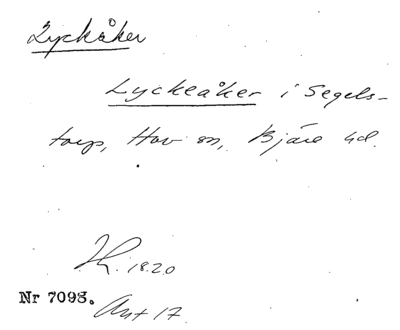 Lyckåker
Lyckeåker i Segels-
torp, Hov sn, Bjäre hd.
1820
Nr 7093.
Ant 17